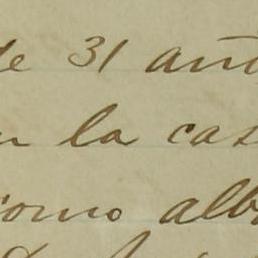 de 31 añ
la cas
como alb